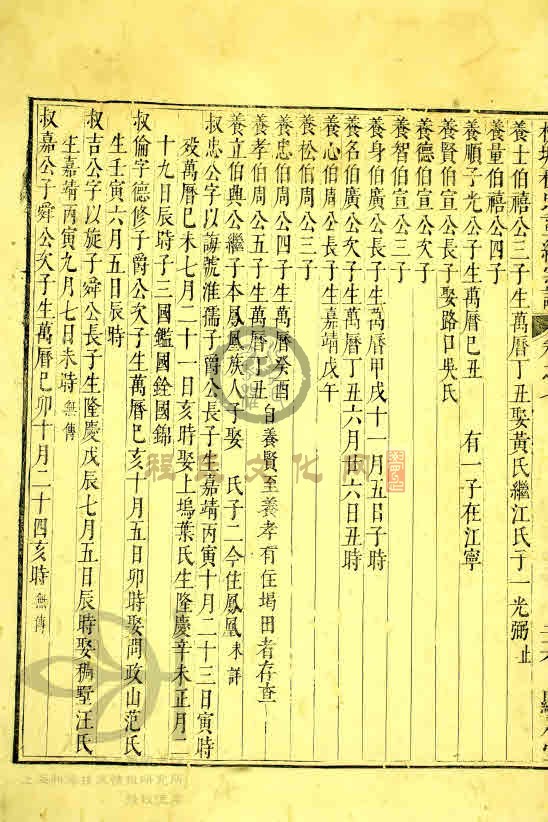 養士伯禧公三子生萬曆丁丑娶黃氏繼江氏子一光弼止
養量伯禧公四子
養順子光公子生萬曆己丑　有一子在江寧
養賢伯宣公長子娶路口吳氏
養德伯宣公次子
養智伯宣公三子
養身伯廣公長子生萬曆甲戌十一月五日子時
養名伯廣公次子生萬曆丁丑六月廿六日丑時
養心伯周公長子生嘉靖戊午
養松伯周公三子
養忠伯周公四子生萬曆癸酉
養孝伯周公五子生萬曆丁丑自養賢至養孝有住堨田者存查
養立伯典公繼子本鳳凰族人子娶　氏子二今住鳳凰未詳
叔忠公字以誨號淮孺子爵公長子生嘉靖丙寅十月二十三日寅時
歿萬曆己未七月二十一日亥時娶上塢葉氏生隆慶辛未正月二
十九日辰時子三國鑑國銓國錦
叔倫字德修子爵公次子生萬曆己亥十月五日卯時娶問政山范氏
生壬寅六月五日辰時
叔吉公字以旋子舜公長子生隆慶戊辰七月五日辰時娶稠墅汪氏
生嘉靖丙寅九月七日未時無傳
叔嘉公子舜公次子生萬曆己卯十月二十四亥時無傳
程氏文化网